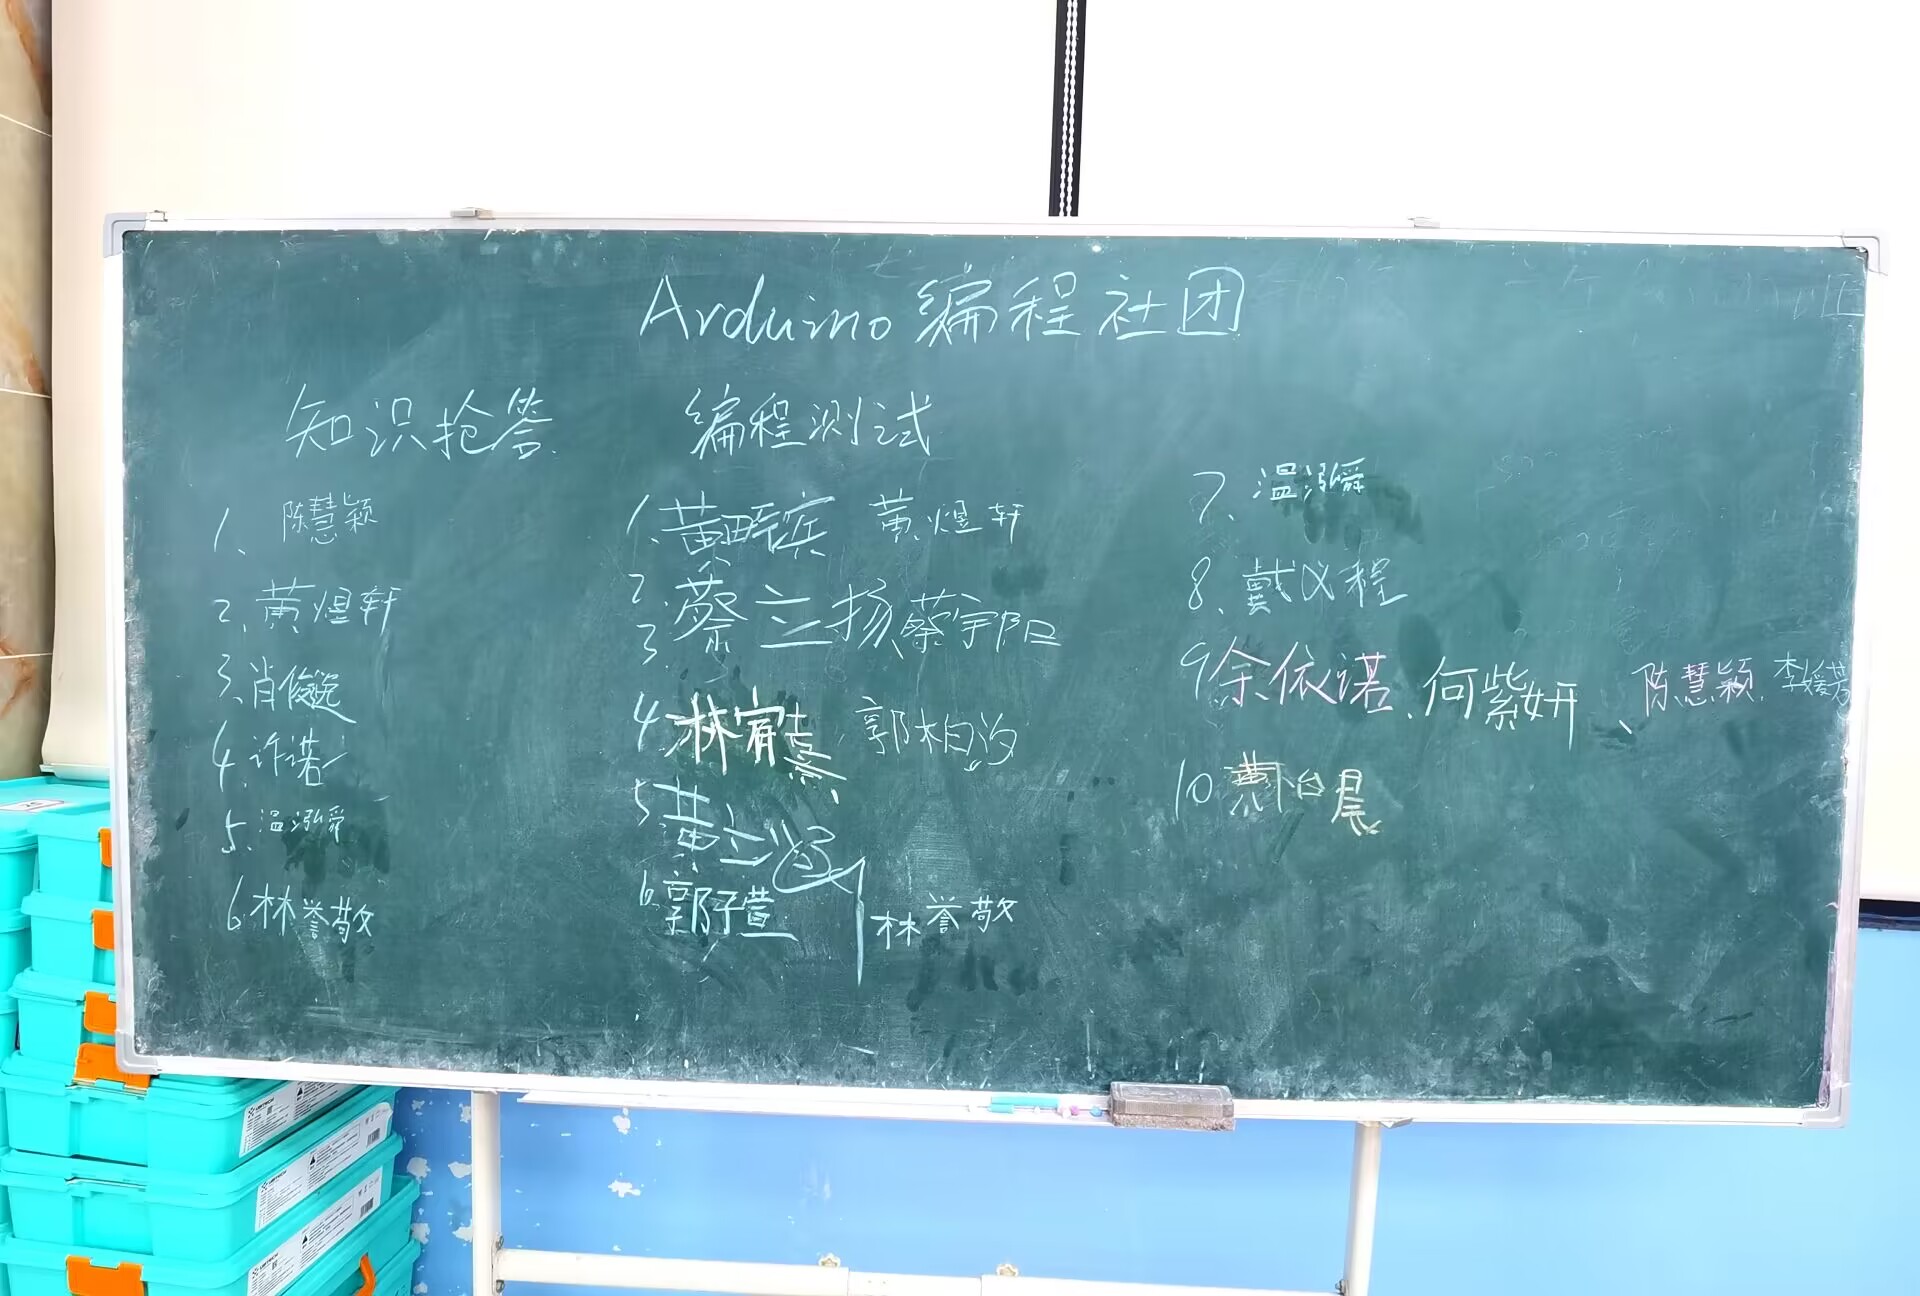 Arduino 编程社团
知识抢答
1、陈慧颖
2、黄煜轩
3、肖俊逸
4、许诺
5、温泓舜
6、林誉敬
编程测试
1、黄 黄煜轩
2、蔡立扬 蔡宇阳
3、
4、林宥熹 郭柏汐
5、黄立
6、郭子萱 林誉敬
7、温泓舜
8、戴以程
9、余依诺、何紫妍、陈慧颖、李媛芳
10